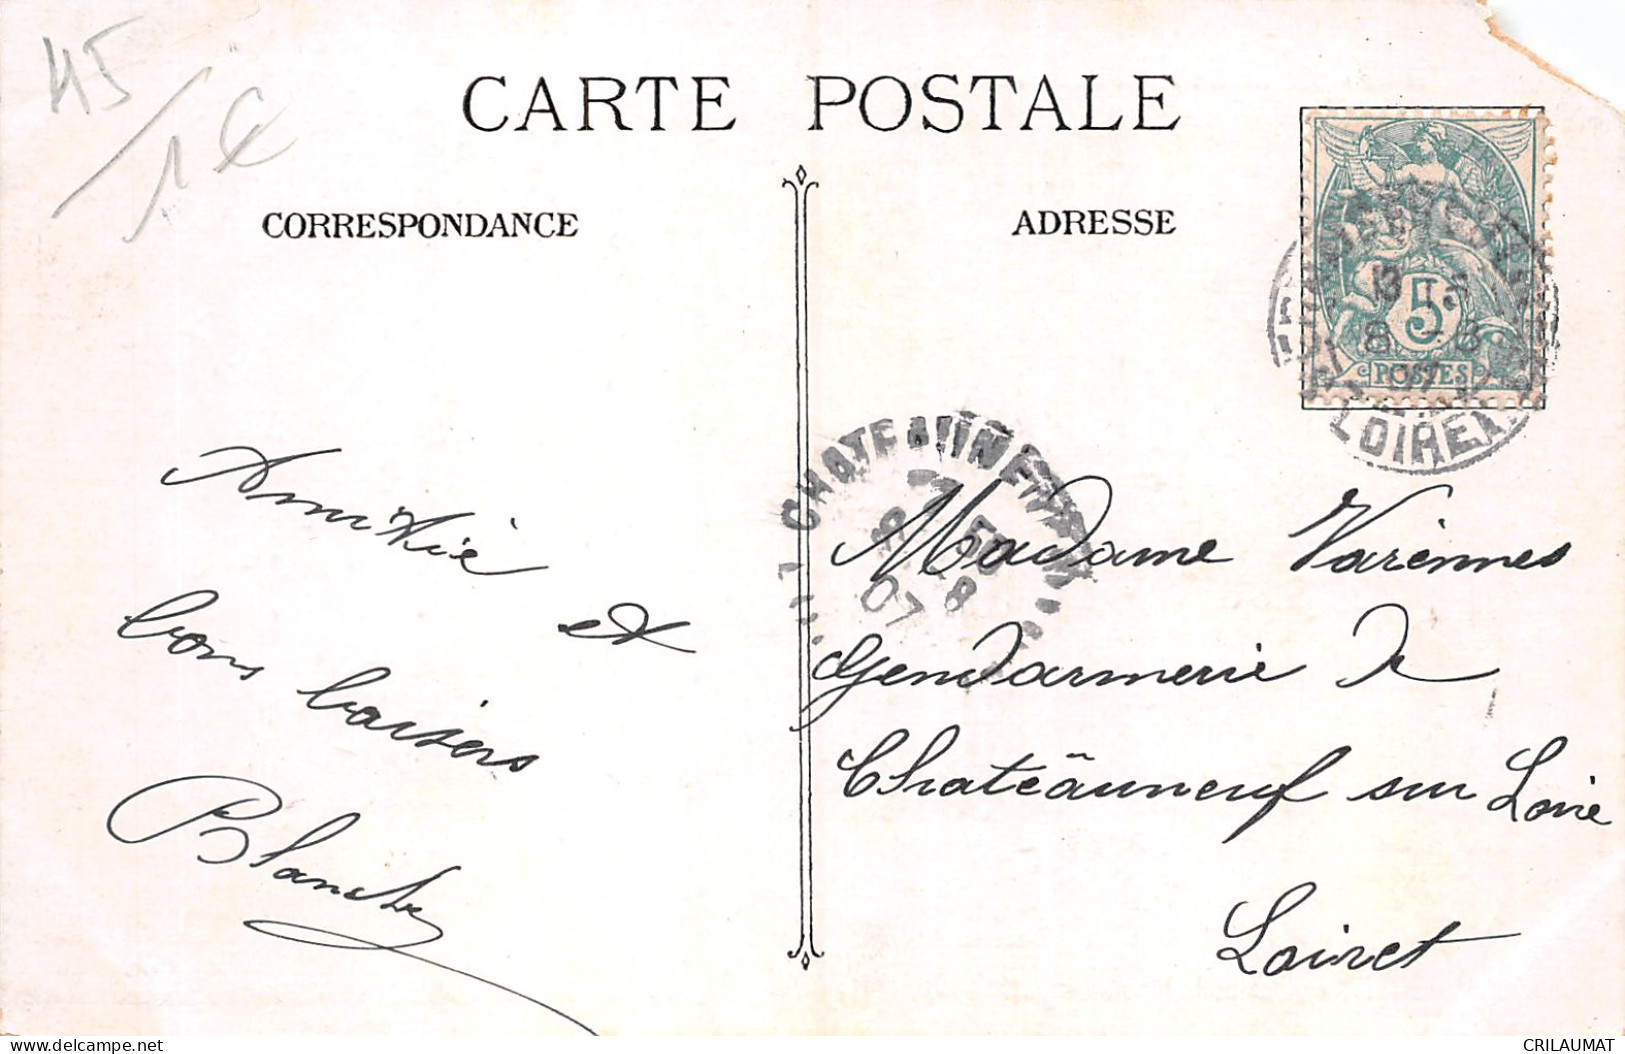 45
1€
CARTE POSTALE
CORRESPONDANCE
ADRESSE
5c
POSTES
13
8 - 8
07
LOIRET
CHATEAUNEUF
7 55
8 - 8
07
Amitié et
bons baisers
Blanche
Madame Varennes
Gendarmerie de
Chateâuneuf sur Loire
Loiret
delcampe.net
CRILAUMAT